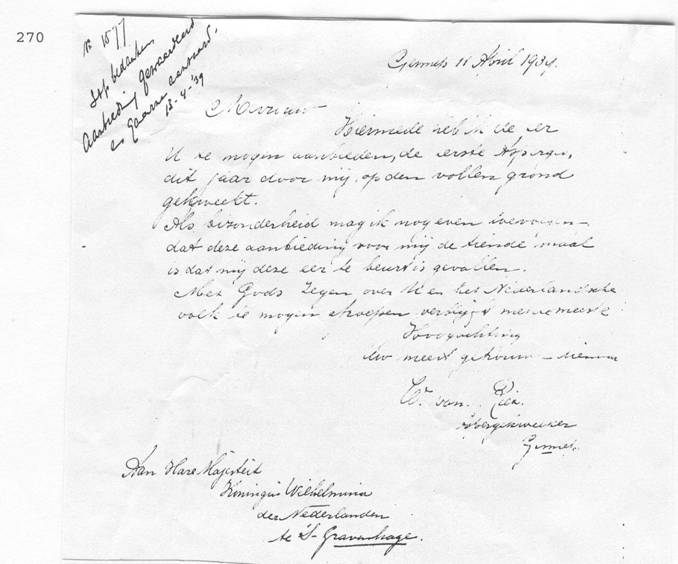 270
No 1577
bedanken
Aanbieding gewaardeerd
en gaarne aanvaard.
13-4-'39
Gennep 11 April 1939.
Mevrouw
Hiermede heb ik de eer
U te mogen aanbieden, de eerste Asperges,
dit jaar door mij, op den vollen grond
gekweekt.
Als bizonderheid mag ik nog even toevoegen
dat deze aanbieding voor mij de tiende maal
is dat mij deze eer te beurt is gevallen.
Met Gods Zegen over U en het Nederlandsche
volk te mogen afroepen
Hoogachting
Uw meest getrouwe
W. van
Aspergekweeker
Gennep.
Aan Hare Majesteit
Koningin Wilhelmina
der Nederlanden
te 's-Gravenhage.